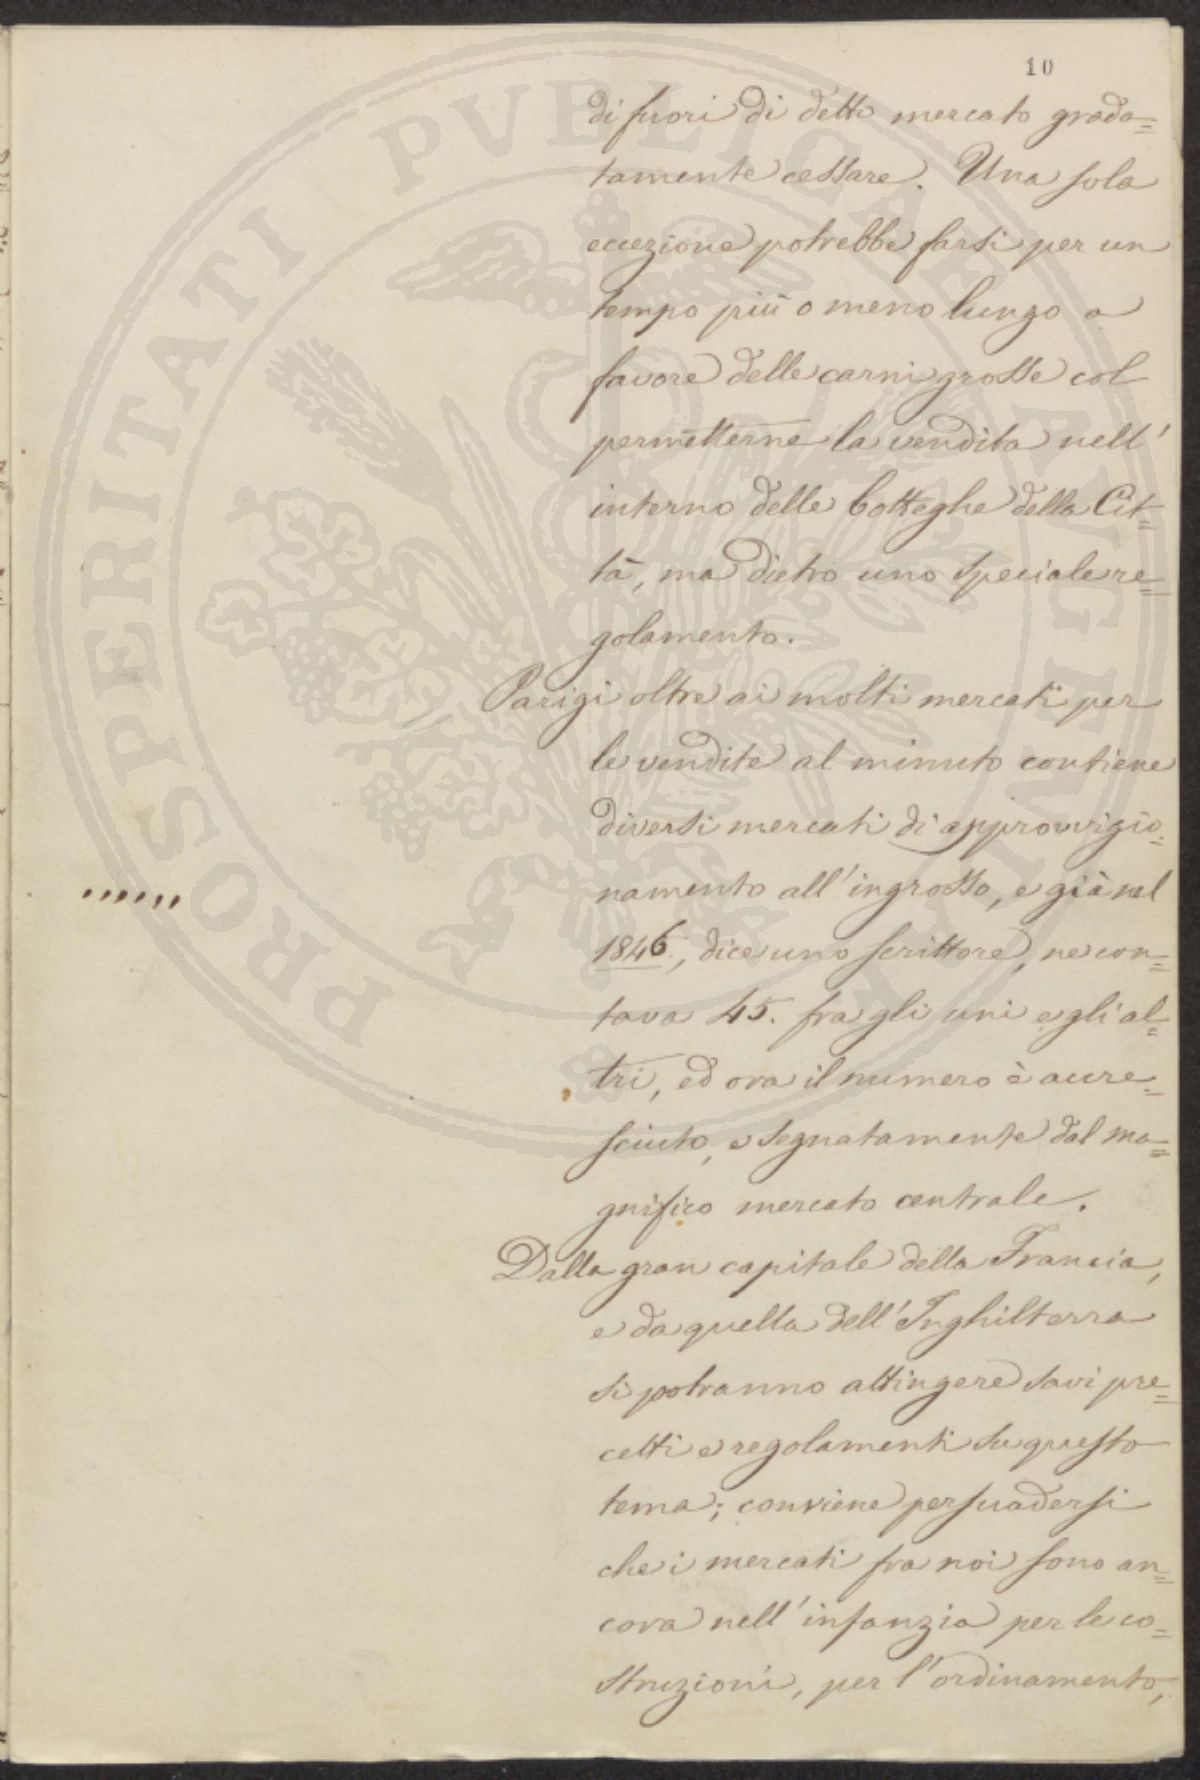 10
di fuori di detto mercato grada=
tamente cessare. Una sola
eccezione potrebbe farsi per un
tempo più o meno lungo a
favore delle carni grosse col
permetterne la vendita nell'
interno delle botteghe della Cit=
tà, ma dietro uno speciale re=
golamento.
Parigi oltre ai molti mercati per
le vendite al minuto contiene
diversi mercati di approvvigio=
namento all'ingrosso, e già nel
......
1846, dice uno scrittore, ne con=
tava 45. fra gli uni e gli al=
tri, ed ora il numero è accre=
sciuto, e segnatamente dal ma=
gnifico mercato centrale.
Dalla gran capitale della Francia,
e da quella dell'Inghilterra
si potranno attingere savi pre=
cetti e regolamenti su questo
tema; conviene persuadersi
che i mercati fra noi sono an=
cora nell'infanzia per le co=
struzioni, per l'ordinamento,
PROSPERITATI PVBLICAE